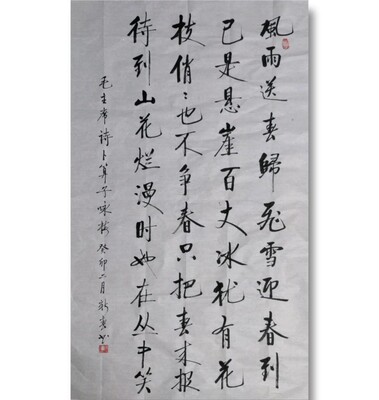 風雨送春歸飛雪迎春到
已是悬崖百丈冰犹有花
枝俏俏也不争春只把春来报
待到山花烂漫时她在丛中笑
毛主席诗卜算子咏梅癸卯二月